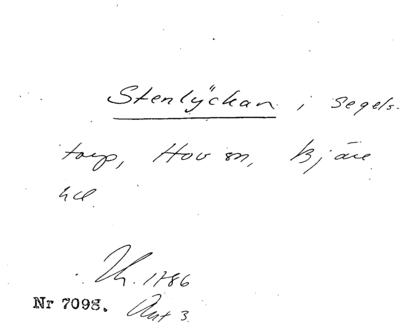 Stenlyckan i Segels-
torp, Hov sn, Bjäre
hd.
Lh. 1786
Nr 7098. Akt 3.